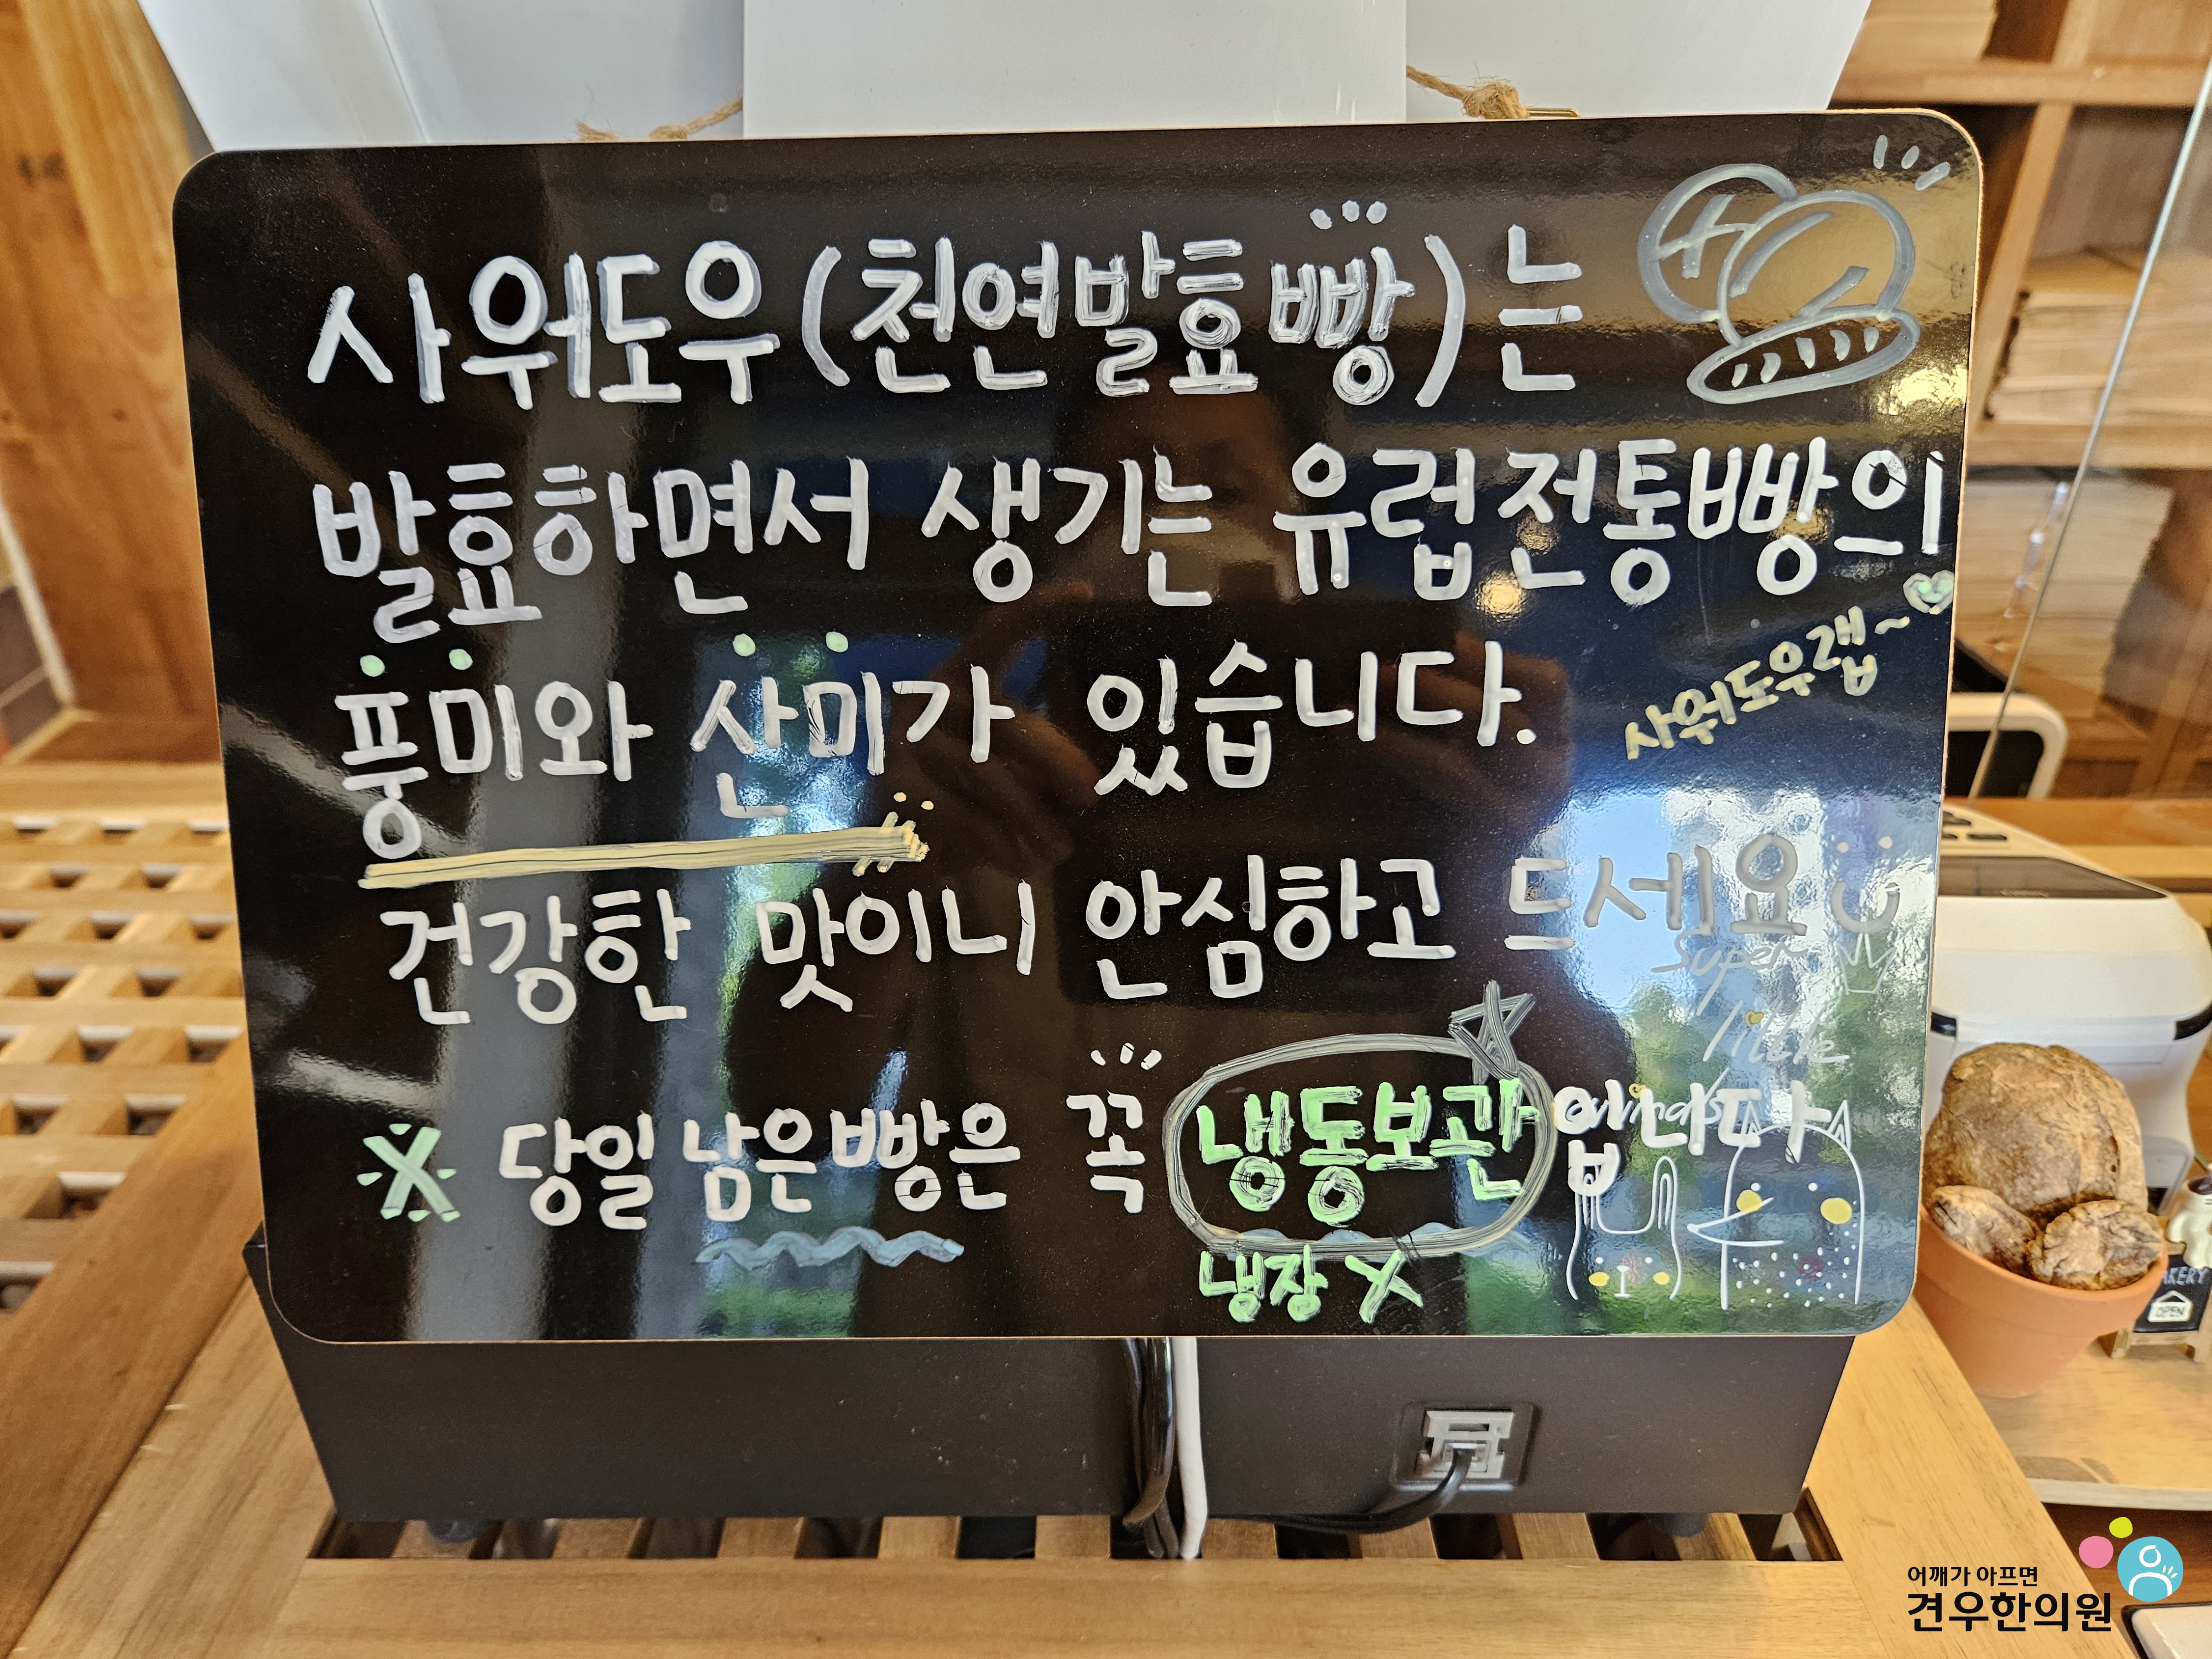 사워도우(천연발효빵)는
발효하면서 생기는 유럽전통빵의
풍미와 산미가 있습니다.
사워도우랩~
건강한 맛이니 안심하고 드세요
super
little
animals
※ 당일 남은빵은 꼭 냉동보관입니다
냉장 X
BAKERY
OPEN
어깨가 아프면
견우한의원